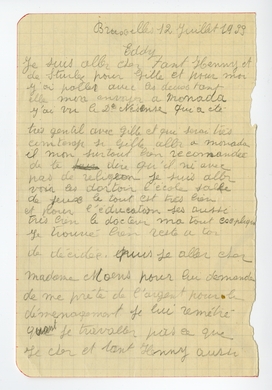 Bruxelles 12 Juillet 1933
Eddy
Je suis allé cher Tant Henny et
de pour Gille et pour moi
y a poller avec les
ille mon envoyer a monada
y ai vu le Dr qui a été
tres gentil avec Gille et que serai très
si Gille aller a monada
il mon surtout bien recomandée
de la dire que il ni avai
pas de religion je suis aller
voir les dortoir l'école salle
de jeux le tout est tres bien
et pour l'education ses aussi
tres bien le docteur ma tout expliquer
je trouve bien reste a toi
de décider puis je aller cher
madame Moens pour lui demander
de me prété de l'argent pour le
demenagement je lui remétré
quant je travaller pas a que
je cher et tant Henny aussi